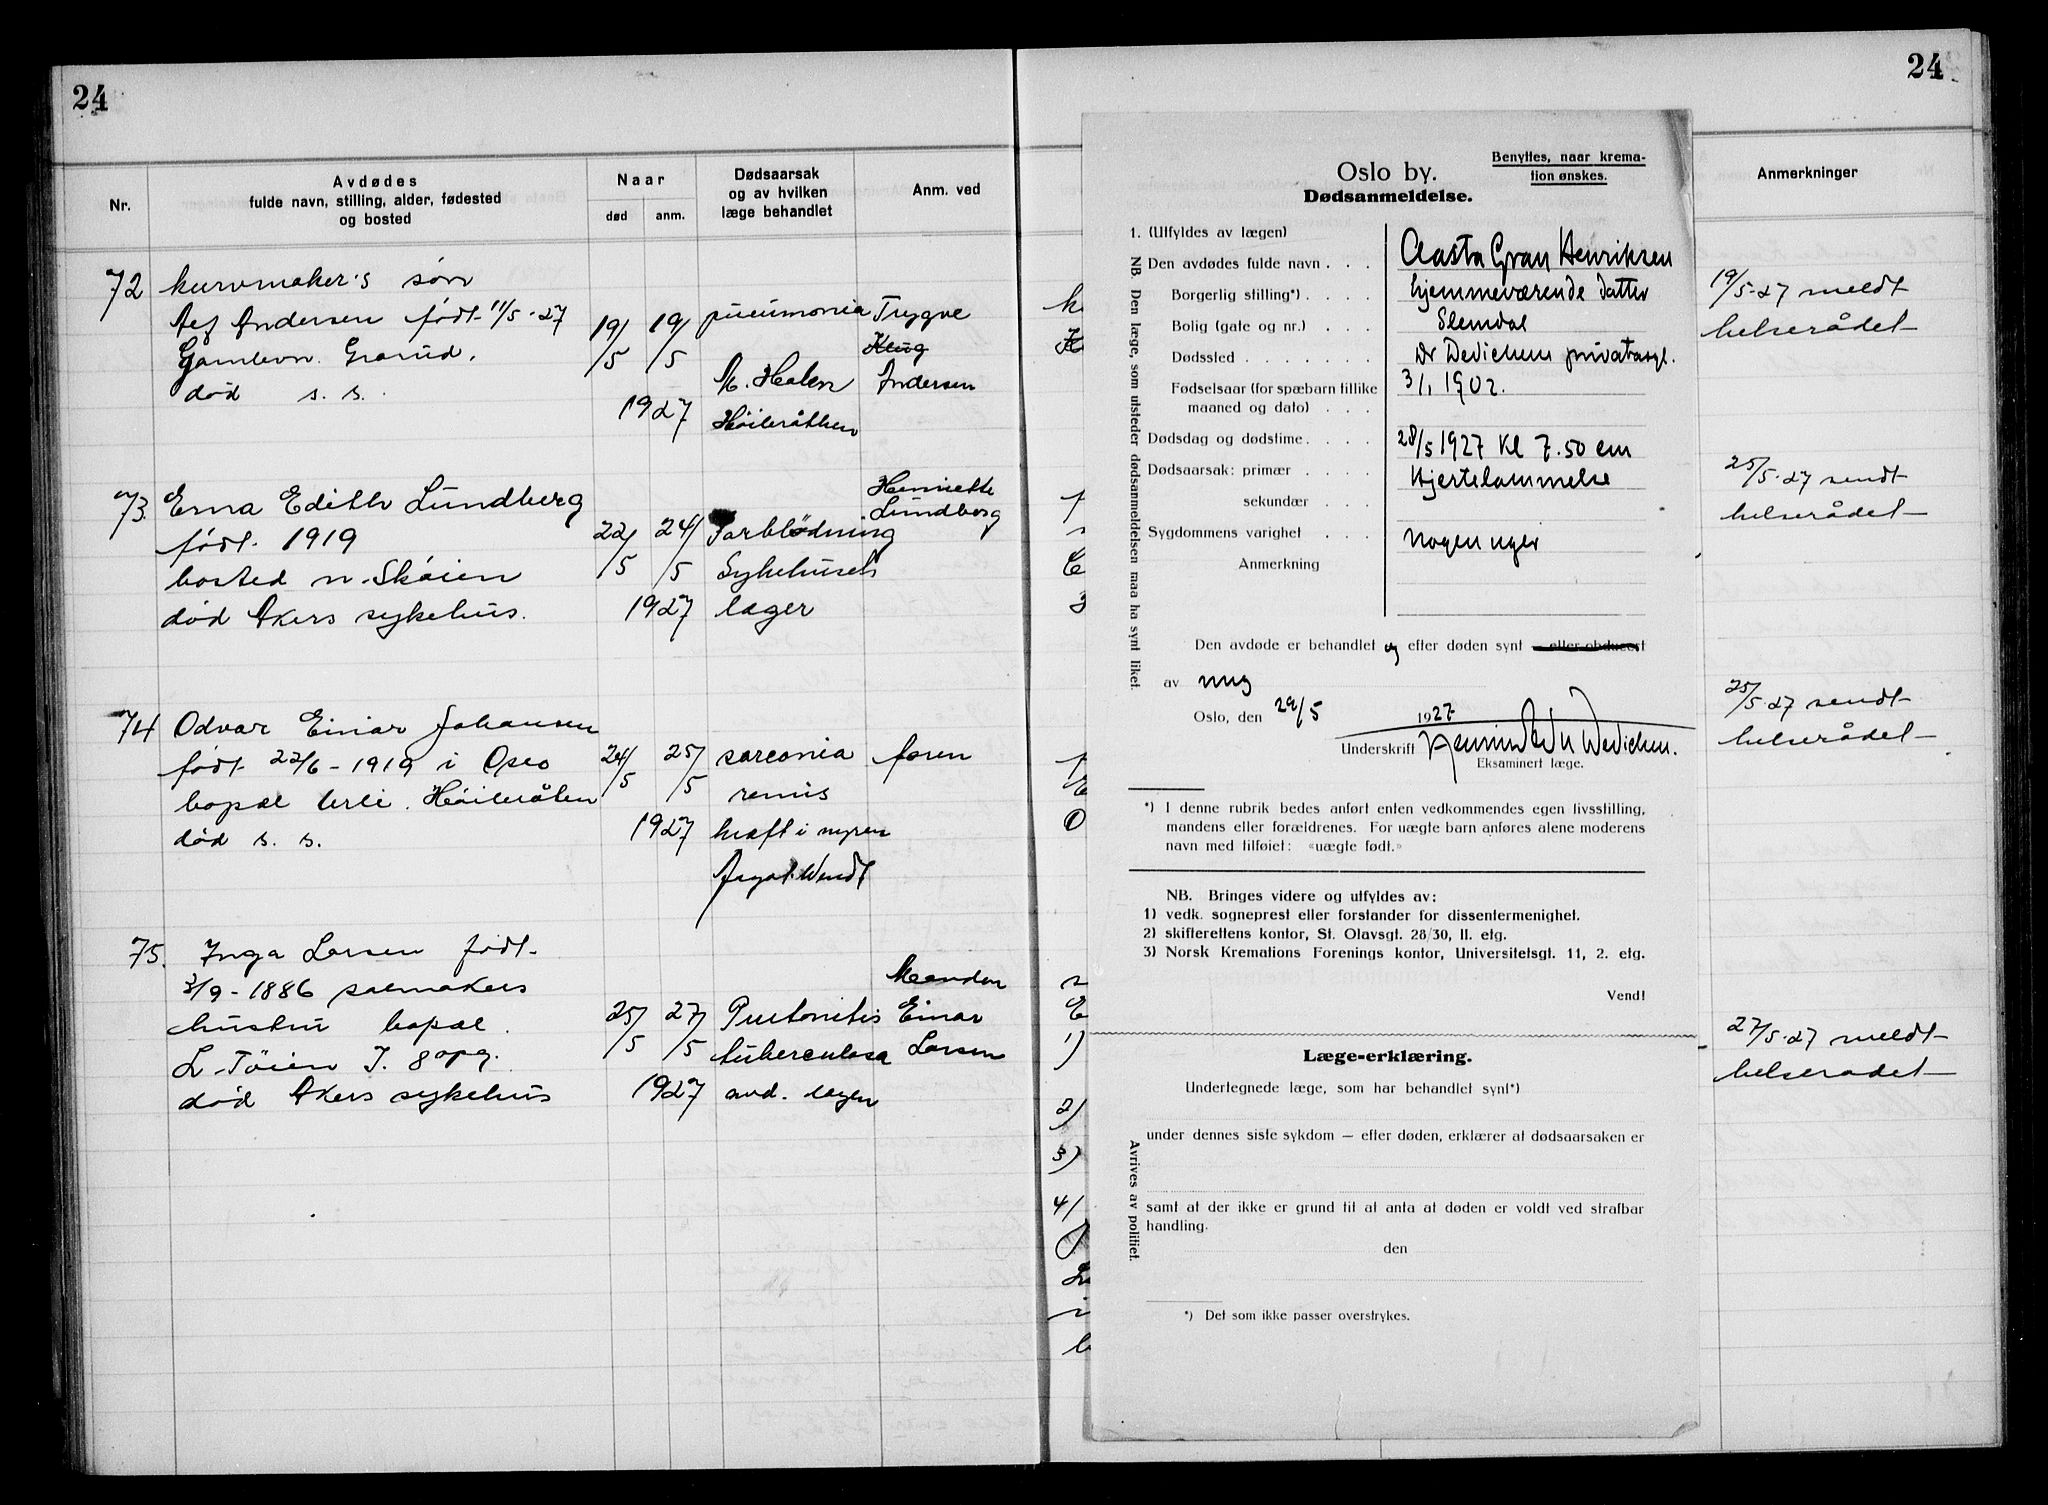 24
Nr.
Avdødes
fulde navn, stilling, alder, fødested
og bosted
Naar
død
anm.
Dødsaarsak
og av hvilken
læge behandlet
Anm. ved
72
kurvmaker's søn
Andersen født 11/5-27
Grorud.
død s. s.
19/5
19/5
1927
pneumonia
Trygve
Andersen
73.
Erna Edith Lundberg
født 1919
bosted n. Skøien
død Akers sykehus.
22/5
24/5
1927
Forblødning
Sykehusets
læger
Henriette
Lundberg
74
Odvar Einar Johansen
født 22/6-1919 i Oslo
bopæl
død s. s.
24/5
25/5
1927
renis
kræft i nyren
faren
75.
Inga Larsen født
3/9-1886 salmakers
hustru bopæl.
L. Tøien I. 8 opg.
død Akers sykehus
25/5
27/5
1927
tuberculosa
avd. lægen
Einar
Larsen
1)
2)
3)
4)
24
Anmerkninger
19/5-27 meldt
helserådet
25/5-27 sendt
helserådet
25/5-27 sendt
helserådet
27/5-27 meldt
helserådet
Benyttes, naar krema-
tion ønskes.
Oslo by.
Dødsanmeldelse.
NB. Den læge, som utsteder dødsanmeldelsen maa ha synt liket.
1. (Utfyldes av lægen)
Den avdødes fulde navn . . . Aasta Gran Henriksen
Borgerlig stilling*) . . . . hjemmeværende datter
Bolig (gate og nr.) . . . Slemdal
Dødssted . . . . . . . Dr Dedichens privatasyl.
Fødselsaar (for spæbarn tillike
maaned og dato) . . . 3/1 1902.
Dødsdag og dødstime . . . . 28/5 1927 kl 7.50 em
Dødsaarsak: primær . . . . Hjertelammelse
sekundær . . .
Sygdommens varighet . . . Nogen uger
Anmerkning
Den avdøde er behandlet og efter døden synt eller obducert
av mig
Oslo, den 29/5 1927
Underskrift Dedichen.
Eksaminert læge.
*) I denne rubrik bedes anført enten vedkommendes egen livsstilling,
mandens eller forældrenes. For uægte barn anføres alene moderens
navn med tilføiet: «uægte født.»
NB. Bringes videre og utfyldes av:
1) vedk. sogneprest eller forstander for dissentermenighet.
2) skifterettens kontor, St. Olavsgt. 28/30, II. etg.
3) Norsk Kremations Forenings kontor, Universitetsgt. 11, 2. etg.
Vend!
Læge-erklæring.
Undertegnede læge, som har behandlet synt*)
under dennes siste sykdom — efter døden, erklærer at dødsaarsaken er
samt at der ikke er grund til at anta at døden er voldt ved strafbar
handling.
den
Avrives av politiet.
*) Det som ikke passer overstrykes.